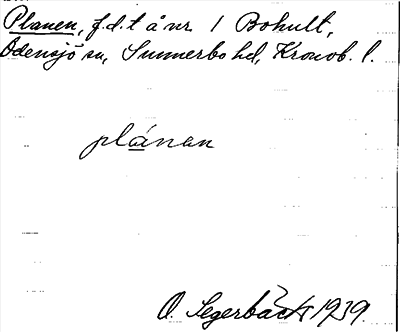 Planen, f.d.t å nr 1 Bohult,
Odensjö sn, Sunnerbo hd, Kronob. l.
plánan
O. Segerbäck 1939.